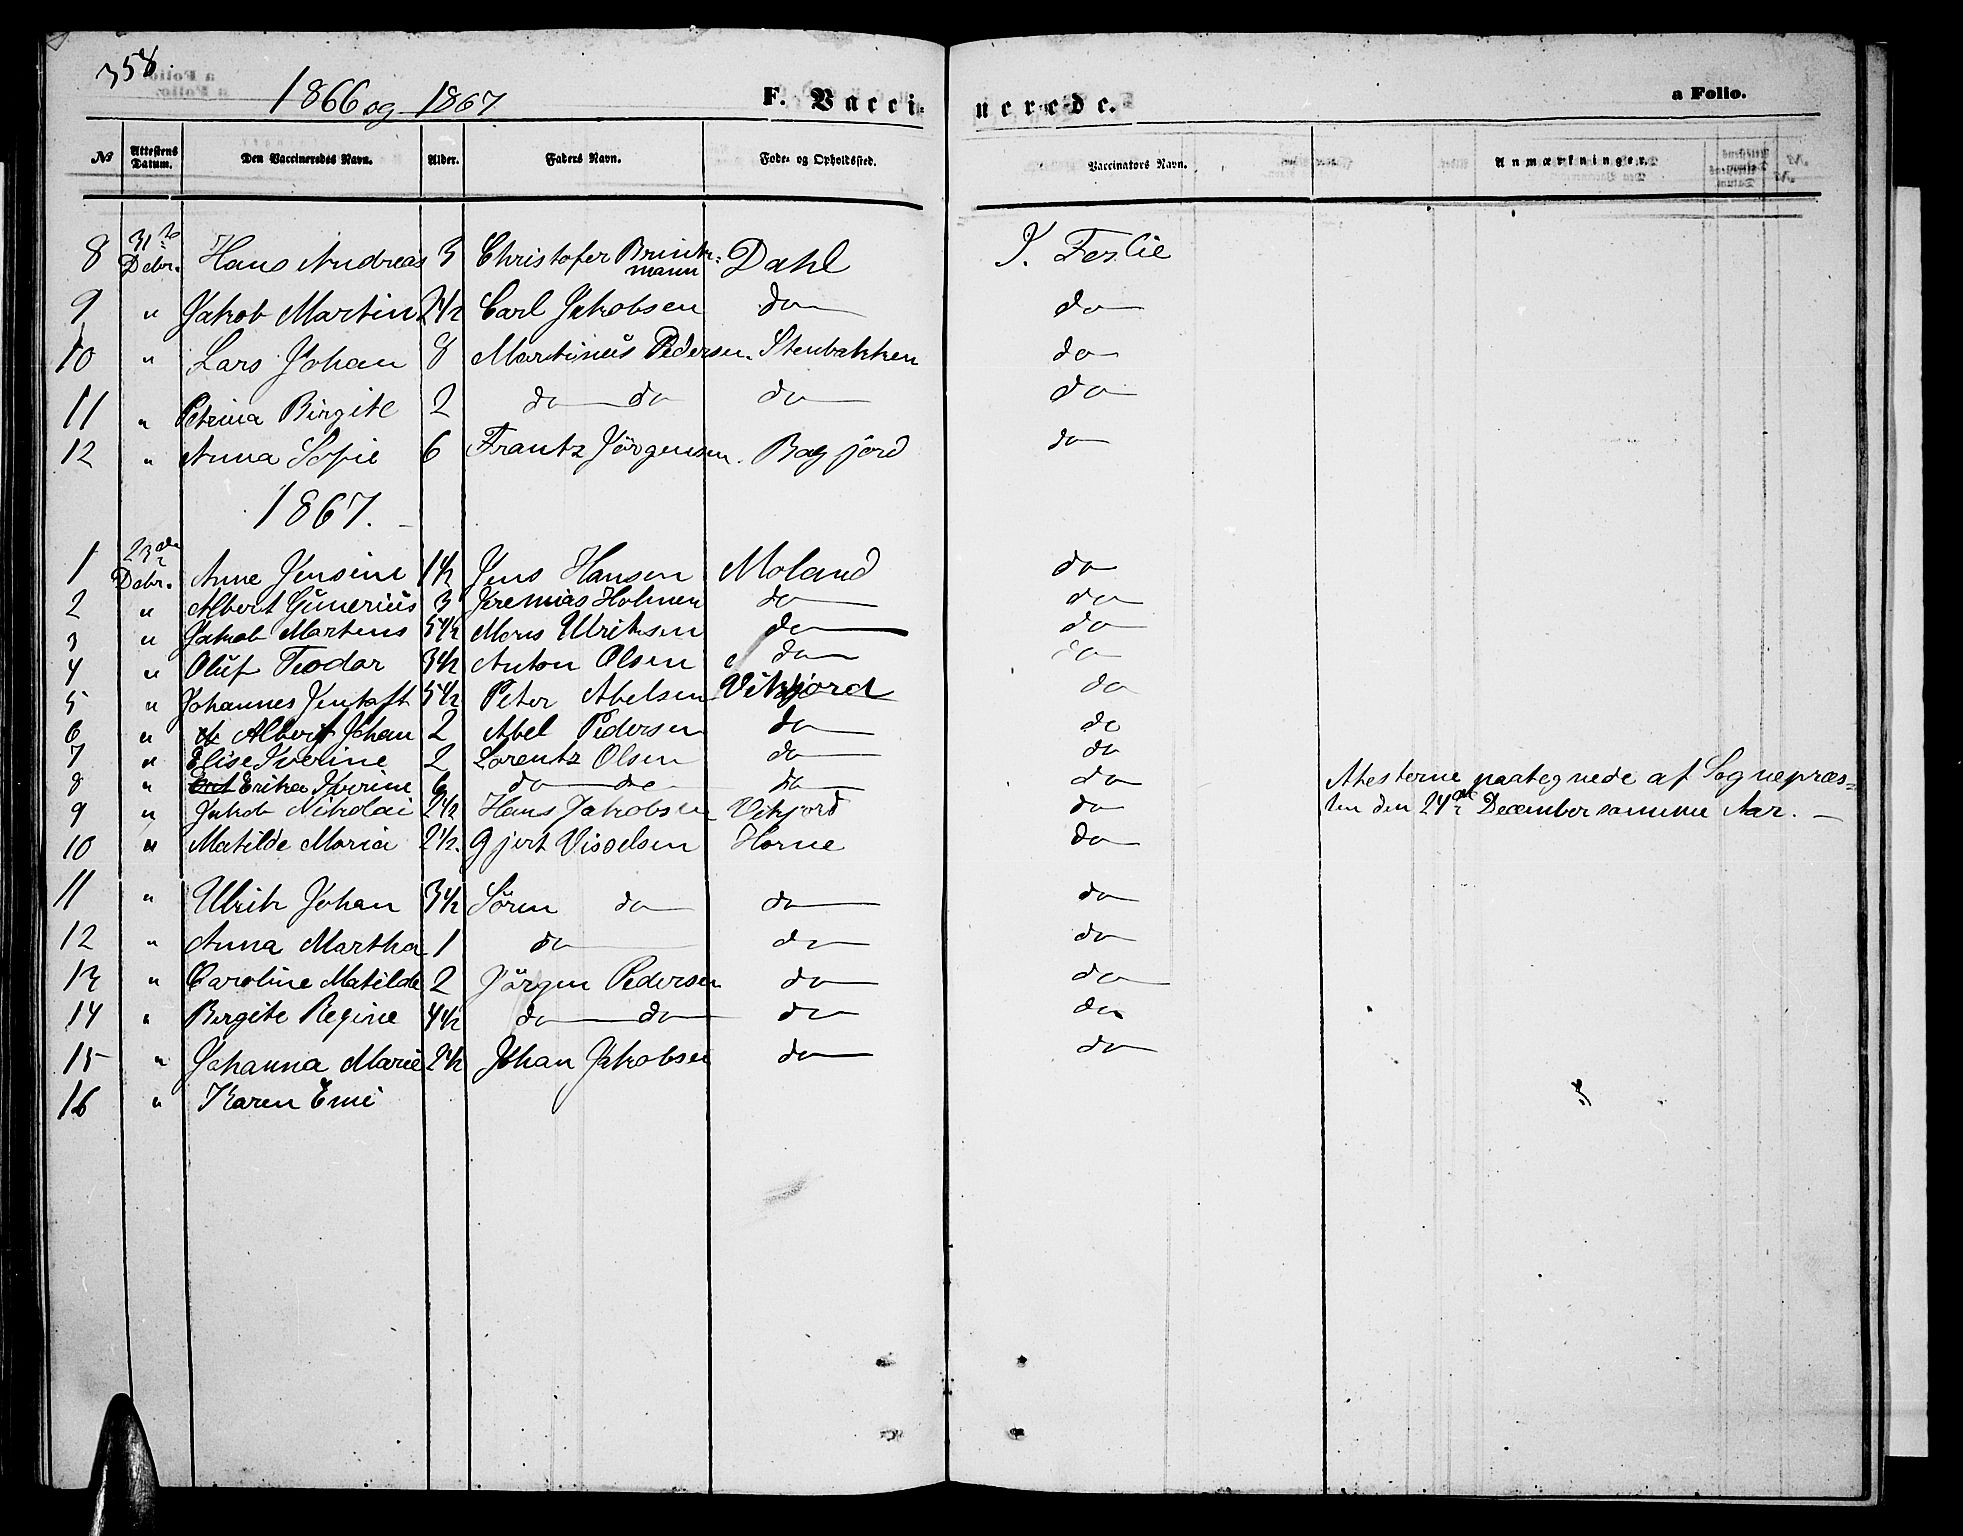 358.
1866 og 1867
F. Vaccinerede.
a Folio.
№ Attestens Datum. Den Vaccineredes Navn. Alder. Faders Navn. Føde- og Opholdssted. Vaccinators Navn. Anmærkninger.
8 31te Debr. Hans Andreas 3 Christofer Brinkmann Dahl J. Feslie
9 " Jakob Martin 2 1/2 Carl Jakobsen do do
10 " Lars Johan 8 Martinus Pedersen Stenbakken do
11 " Petrina Birgite 2 do do do do
12 " Anna Sofie 6 Frantz Jörgensen. Bagjord do
1867.
1 23de Debr. Anne Jensine 1 1/2 Jens Hansen Moland do
2 " Albert Gunerius 3 Jremias Holmen do do
3 " Jakob Martens 5 1/2 Mons Ulriksen do do
4 " Oluf Teodor 3 1/2 Anton Olsen do do
5 " Johannes Jentoft 5 1/2 Peter Abelsen Vikjord do
6 " Albert Johan 2 Abel Pedersen do do
7 " Elise Iverine 2 Lorentz Olsen do do
8 " Erika Iverine 6 do do do do Atesterne paategnede af Sognepræs=
9 " Jakob Nikolai 2 1/2 Hans Jakobsen Vikjord do ten den 24de December samme Aar. —
10 " Matilde Maria 2 1/2. Gjert Visselsen Horne do
11 " Ulrik Johan 3 1/2 Sören do do do
12 " Anna Martha 1 do do do
13 " Caroline Matilde 2 Jörgen Pedersen do do
14 " Bergite Regine 4 1/2 do do do do
15 " Johanna Marie 2 1/2 Johan Jakobsen do do
16 " Karen Emi